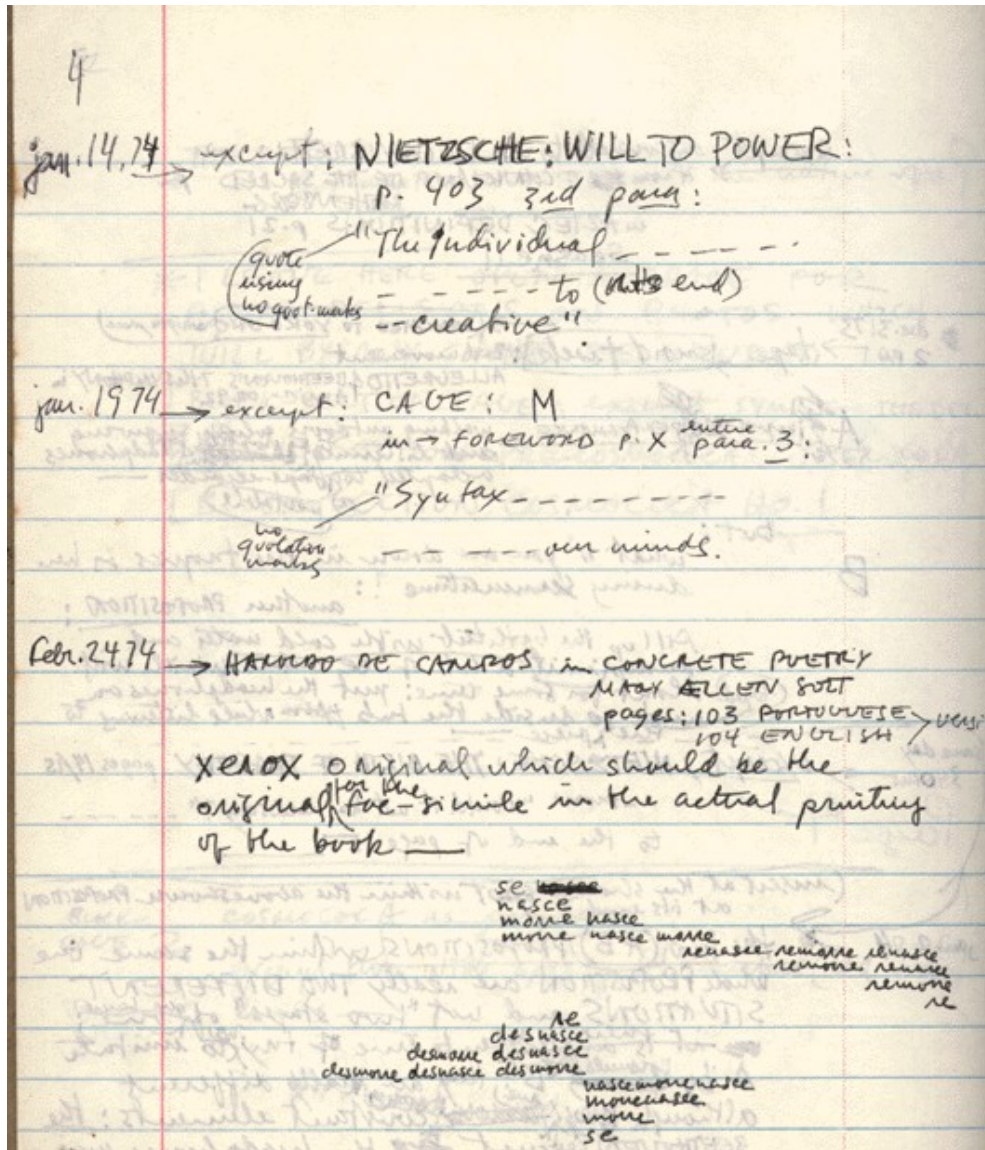 4
jan. 14, 74 → excerpt: NIETZSCHE: WILL TO POWER:
p. 403 3rd para:
"The individual _ _ _ _ _ _
(quote
using
no quot-marks
_ _ _ _ _ _ to ( end)
_ _ creative"
jan. 1974 → excerpt: CAGE: M
in → FOREWORD p. X entire para. 3:
"Syntax _ _ _ _ _ _ _ _ _
no
quotation
marks
_ _ _ _ _ our minds.
Febr. 24 74 → HAROLDO DE CAMPOS in CONCRETE POETRY
MARY ELLEN SOLT
pages: 103 PORTUGUESE
104 ENGLISH
xerox original which should be the
original for the fac-simile in the actual printing
of the book ___
se
nasce
morre nasce
morre nasce morre
renasce remorre renasce
remorre renasce
remorre
re
re
desnasce
desmorre desnasce
desmorre desnasce desmorre
nascemorrenasce
morrenasce
morre
se